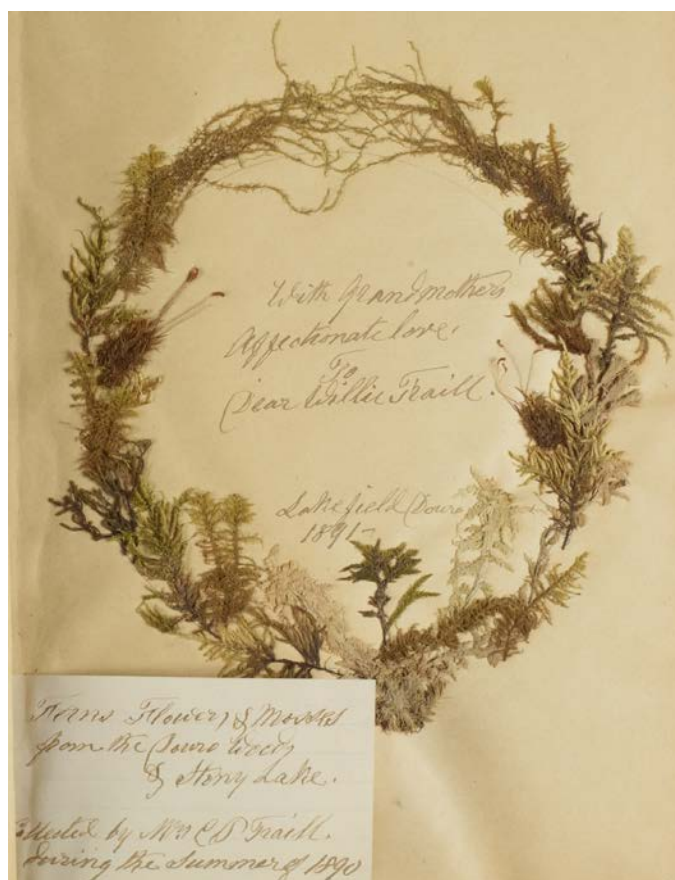 With Grandmothers
Affectionate love.
To
Dear Willie Traill.
Lakefield Douro
1891-
Ferns Flowers & Mosses
from the Douro Woods
& Stony Lake.
by Mrs C P Traill.
during the Summer of 1890